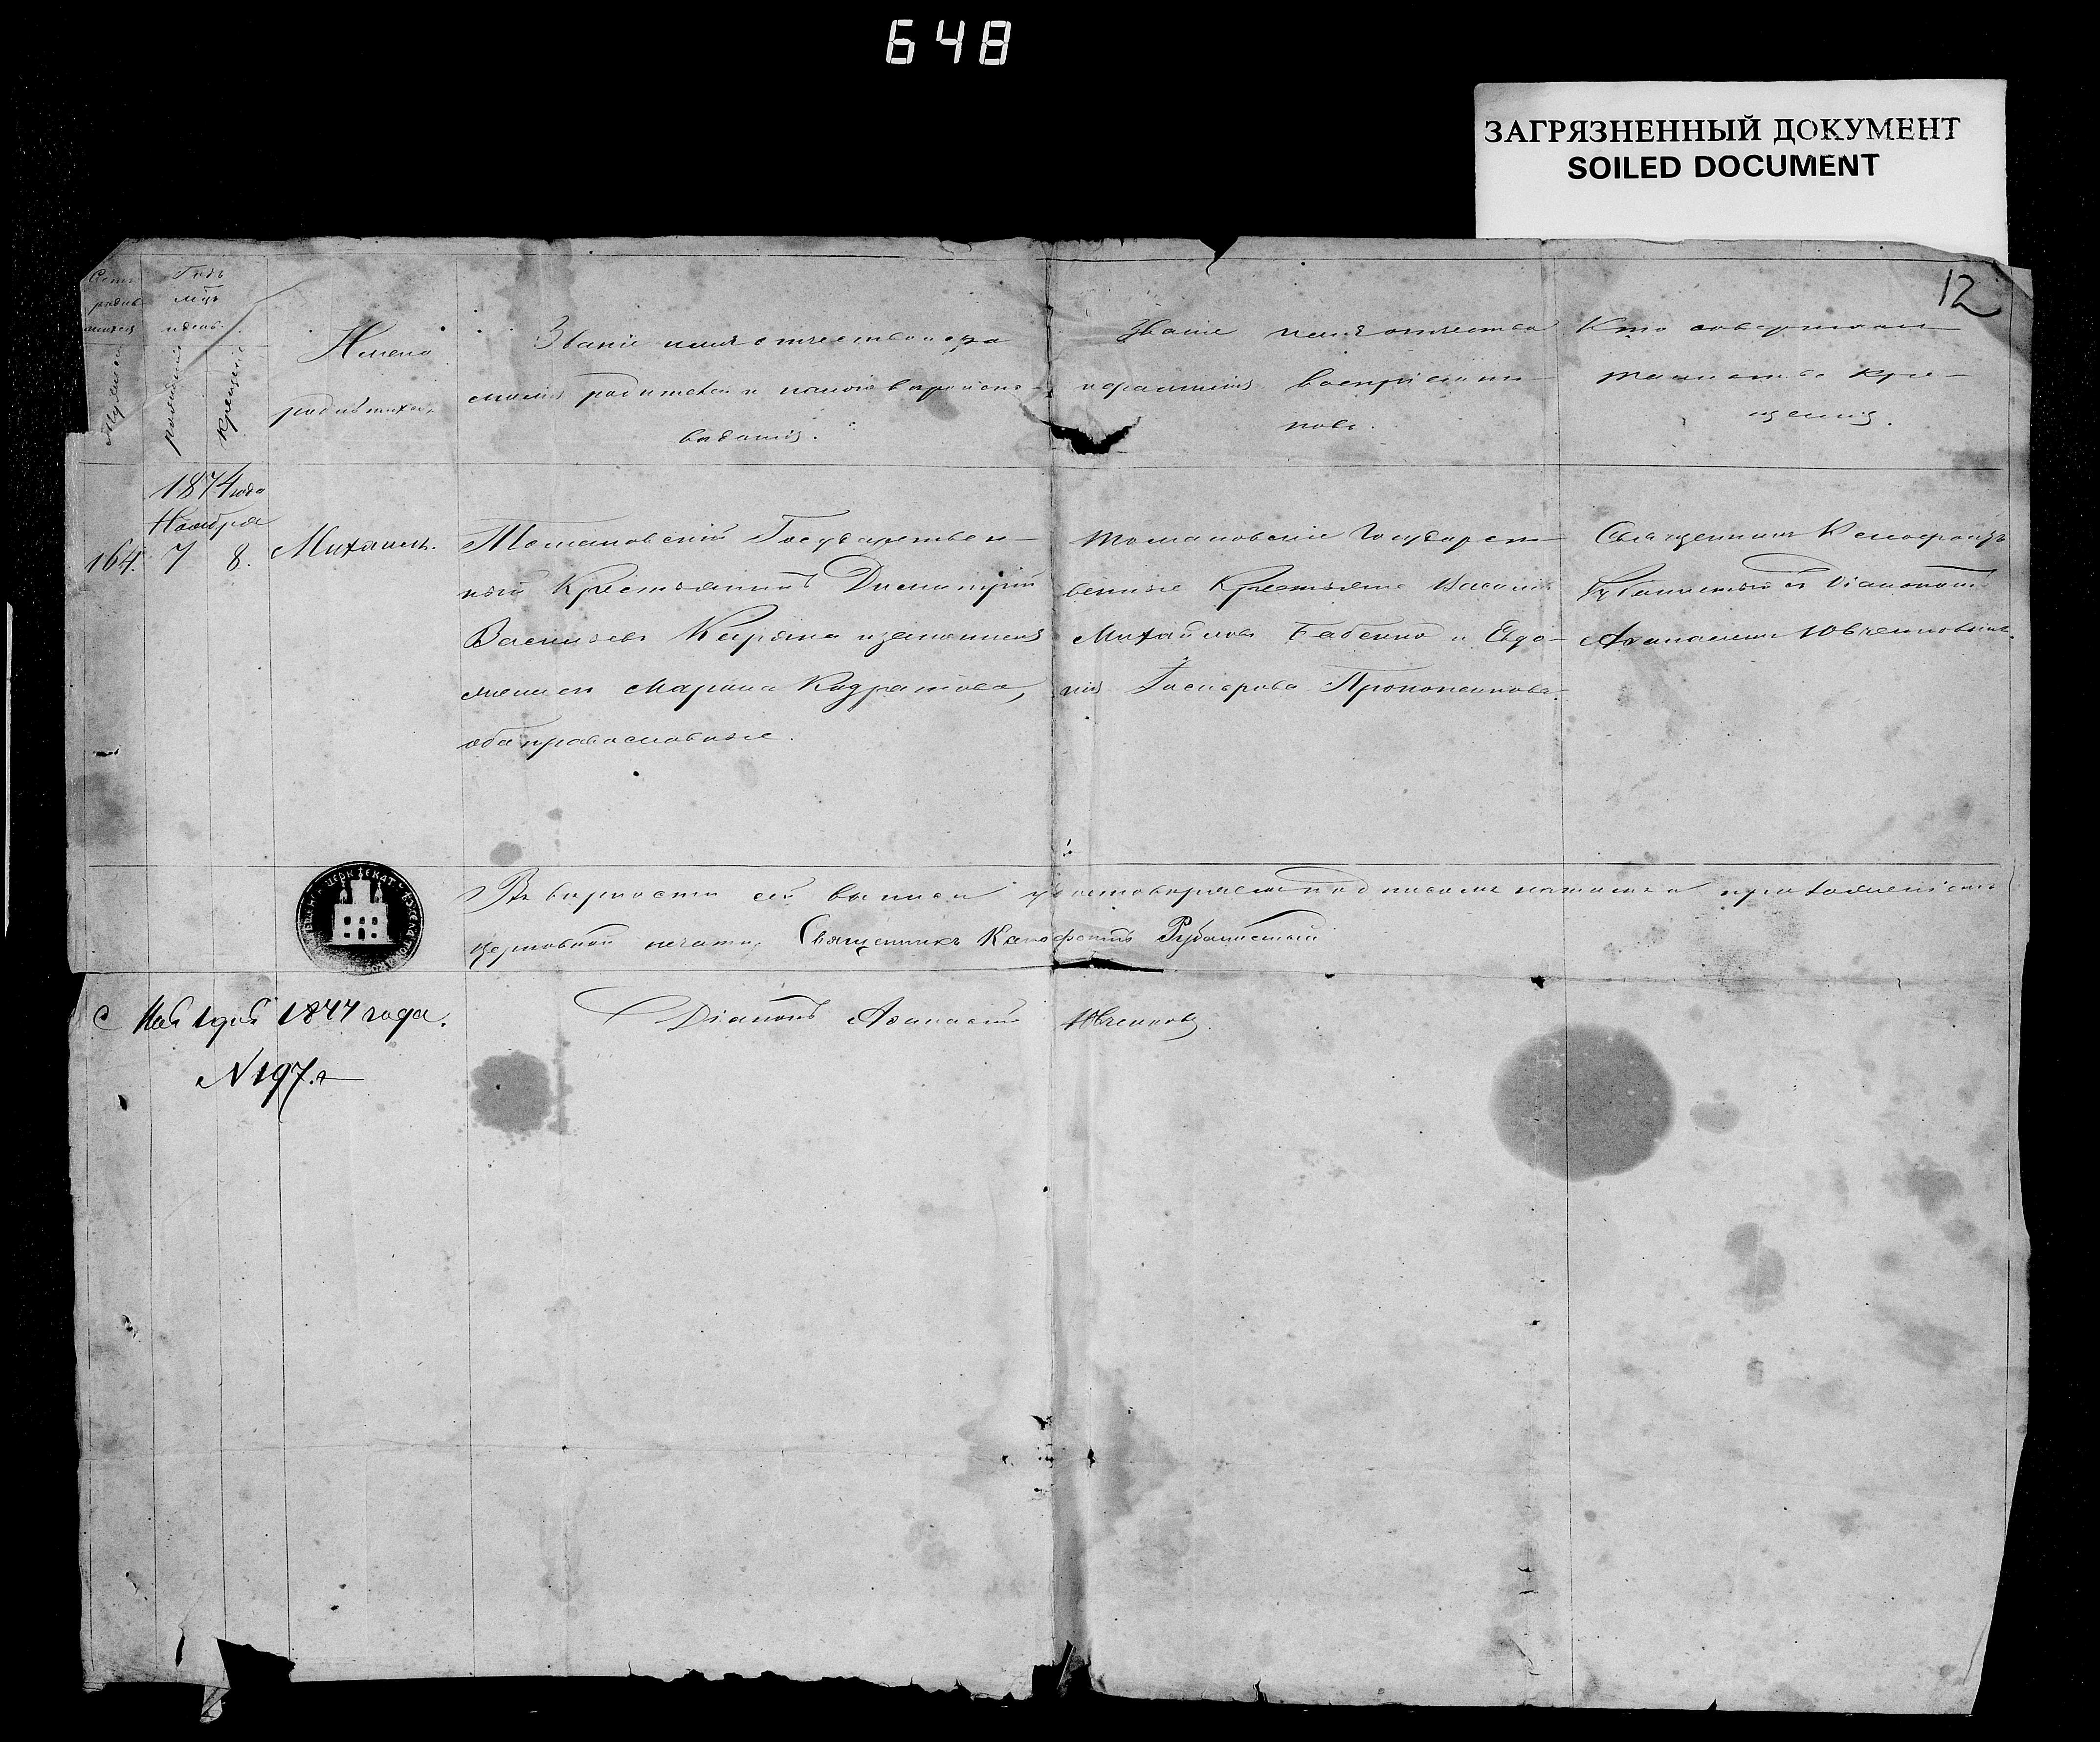 648
ЗАГРЯЗНЕННЫЙ ДОКУМЕНТ
SOILED DOCUMENT
12
Счетъ родив шихся
Годъ мцъ и день.
Мужеска
рожденія
крещенія
Имена
родившихся
Званіе имя отчество и фа
милія родителей и какого вѣроиспо-
веданія.
Званіе имя отчество
и фамилія воспріемни-
ковъ.
Кто совершалъ
таинство кре-
щенія.
1874 года
Ноября
164. 7 8. Михаилъ.
Томаковскій Государствен-
ный Крестьянинъ Димитрій
Васильевъ и законная
жена его Марина Кодратова,
оба православные.
Томаковскіе Государст-
венные Крестьяне Василій
Михайловъ Бабенко и Евдо-
кія
Священникъ Ксенофонтъ
Рубанистый съ Діакономъ
Аѳанасіемъ Ювченковымъ.
Въ вѣрности сей выписи удостовѣряемъ подписомъ нашимъ и приложеніемъ
церковной печати, Священникъ Ксенофонтъ Рубанистый
Діаконъ Аѳанасій Ювченковъ.
1877 года.
N 197.